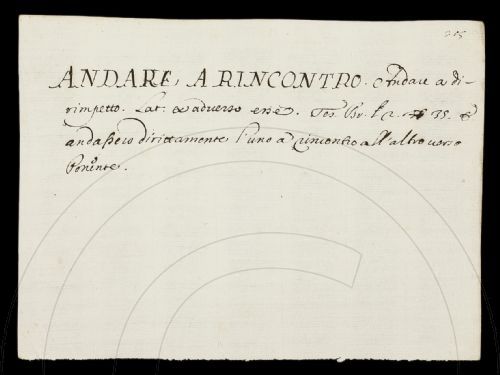 205
ANDARE, A RINCONTRO. o Andare a di-
rimpetto. Lat. ex adverso esse. Tes. Br. l. 2. 35. E
andassero dirittamente l'uno a rincontro all'altro verso
Ponente.